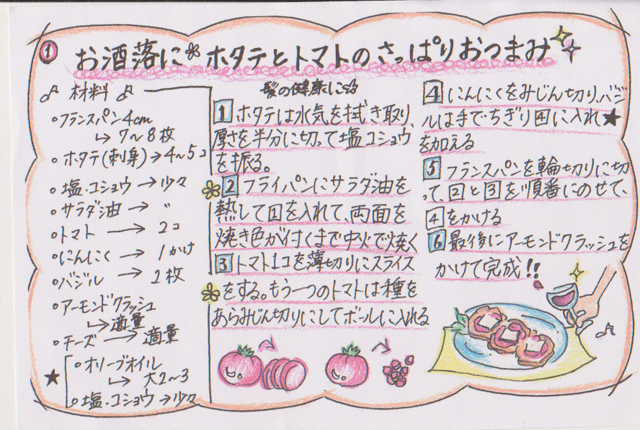 ① お酒落に ホタテとトマトのさっぱりおつまみ
髪の健康に
材料
○フランスパン4cm
→7〜8枚
○ホタテ(刺身)→4〜5コ
○塩・コショウ→少々
○サラダ油→〃
○トマト→2コ
○にんにく→1かけ
○バジル→2枚
○アーモンドクラッシュ
→適量
○チーズ→適量
★
○オリーブオイル
→大2〜3
○塩・コショウ→少々
1 ホタテは水気を拭き取り、
厚さを半分に切って塩コショウ
を振る。
2 フライパンにサラダ油を
熱して1を入れて、両面を
焼き色が付くまで中火で焼く
3 トマト1コを薄切りにスライス
をする。もう一つのトマトは種を
あらみじん切りにしてボールに入れる
4 にんにくをみじん切り、バジ
ルは手でちぎり3に入れ★
を加える
5 フランスパンを輪切りに切
って、2と3を順番にのせて、
4をかける
6 最後にアーモンドクラッシュを
かけて完成!!